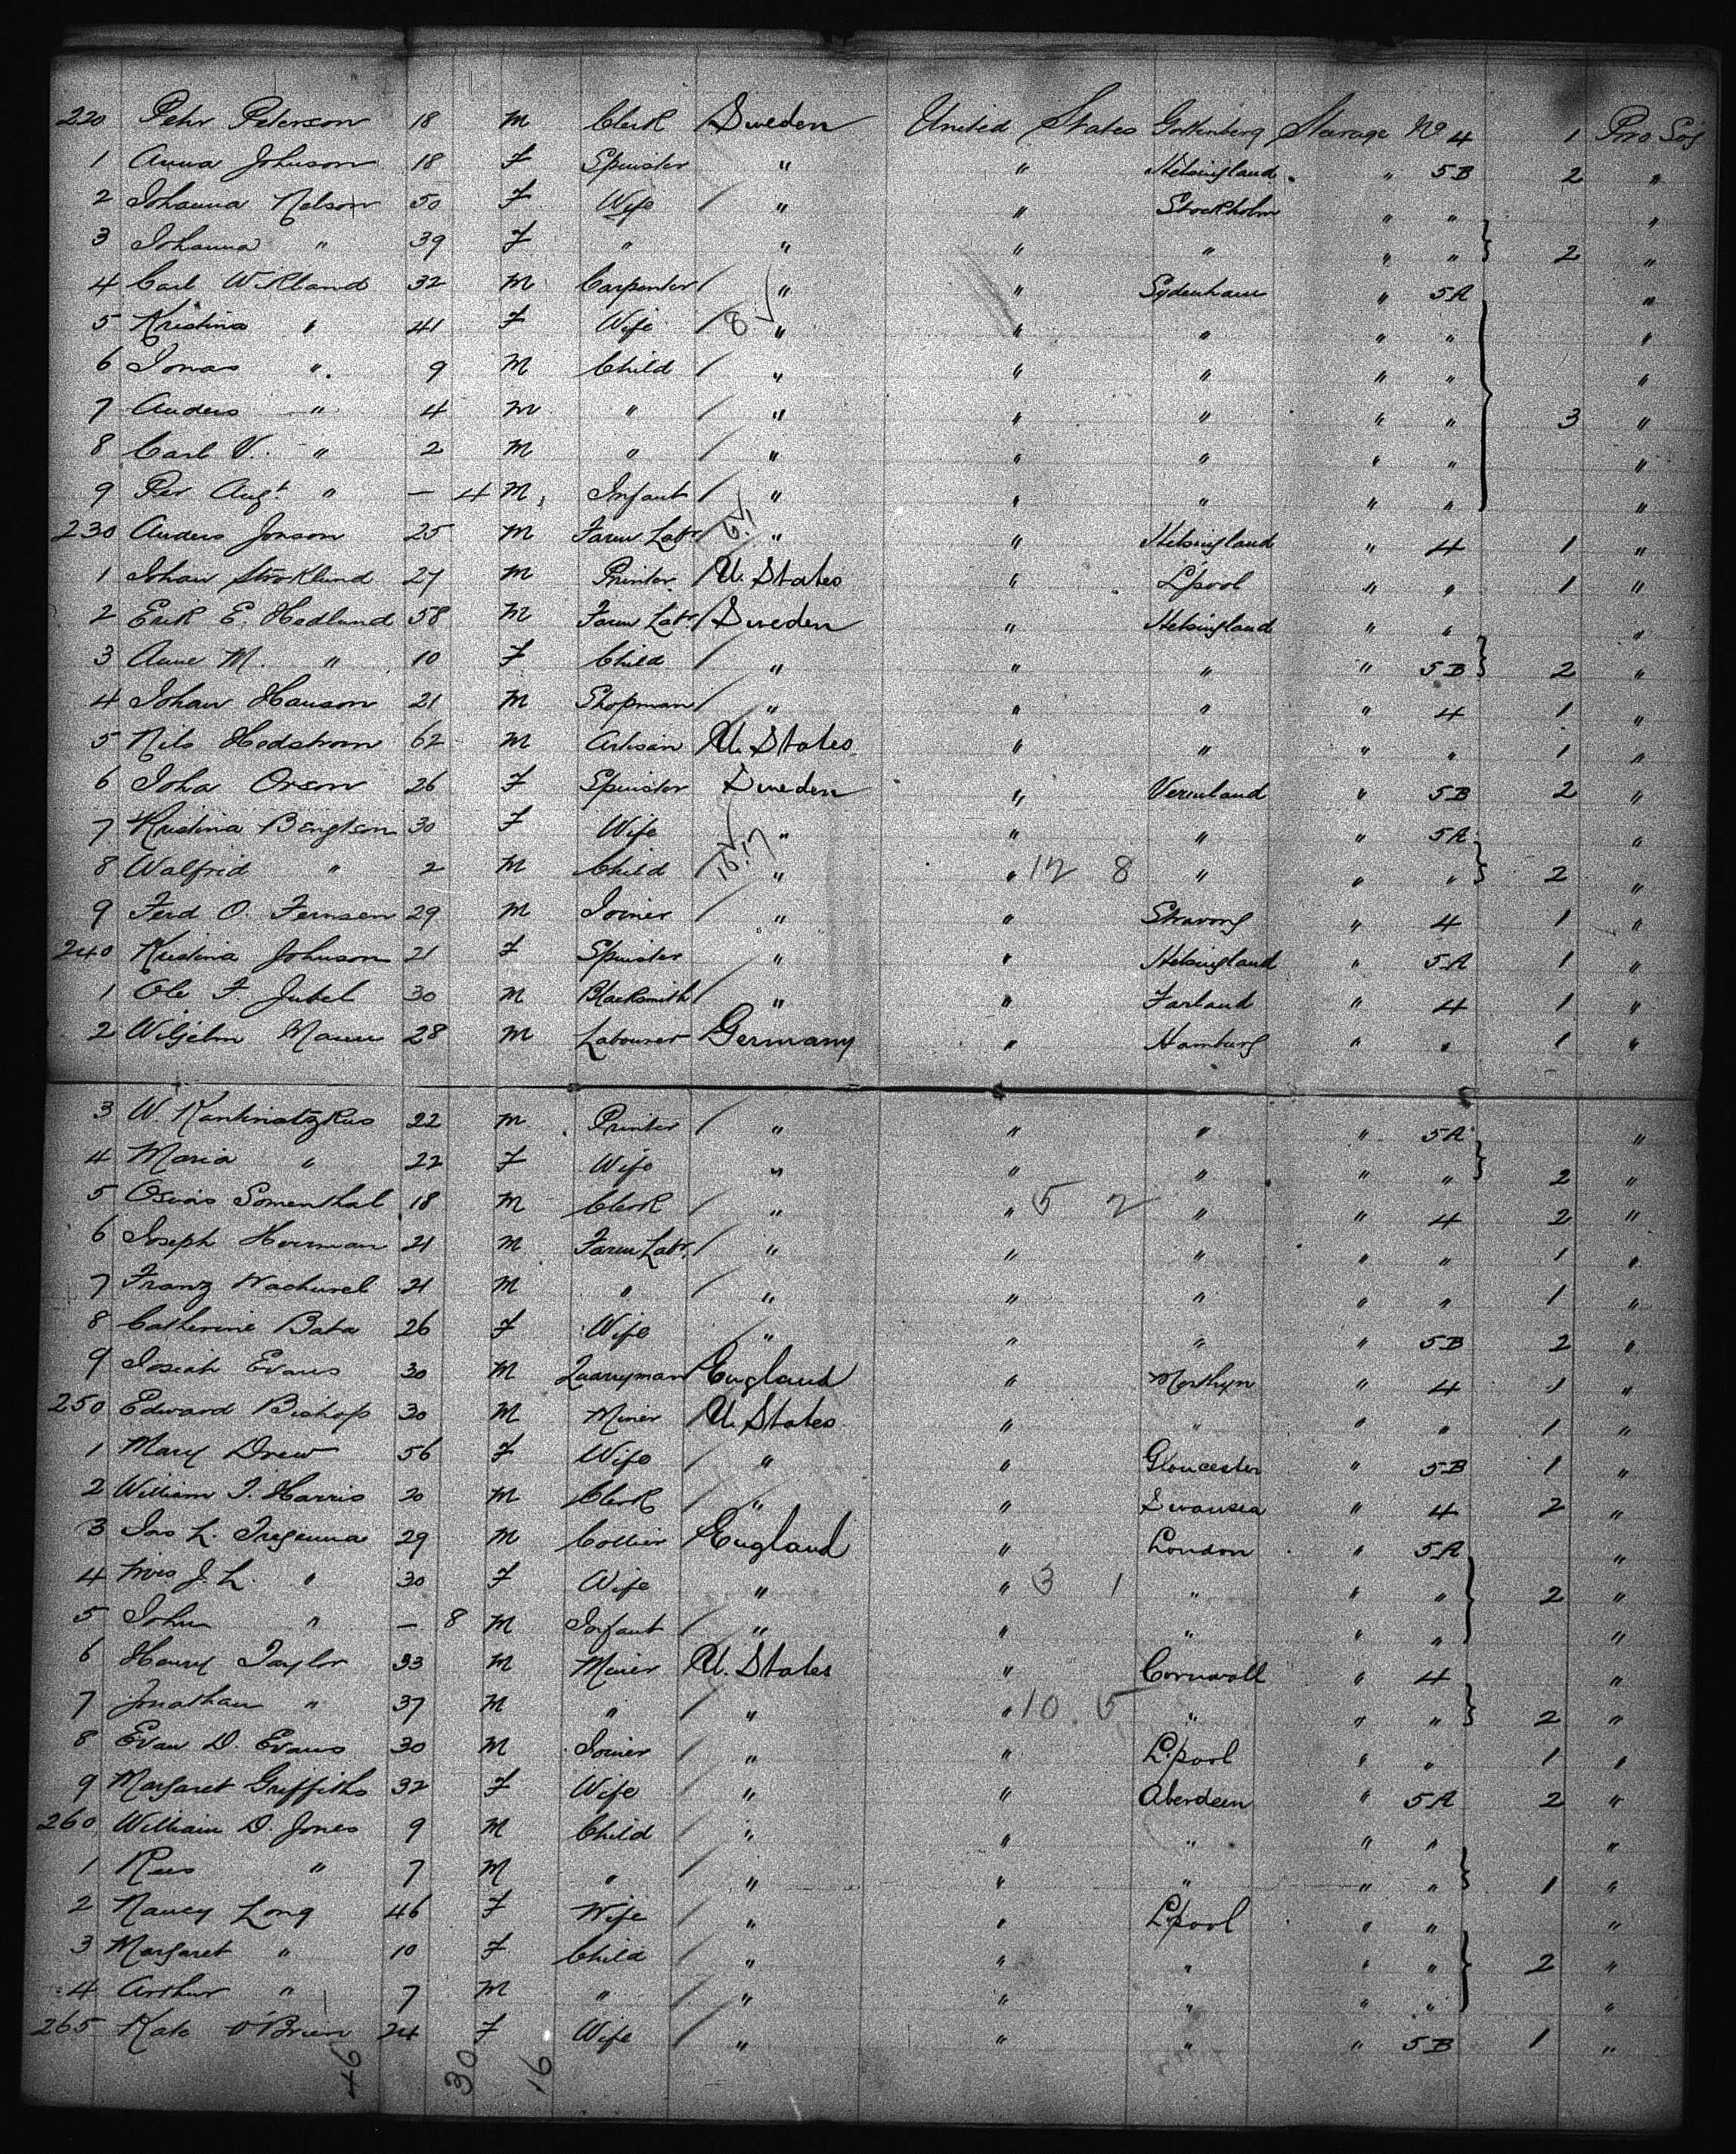 220 Pehr Peterson 18 M Clerk Sweden United States Gothenberg Steerage No 4 1 Pro Soj
1 Anna Johnson 18 F Spinster " " Helsingland " 5B 2 "
2 Johanna Nelson 50 F Wife " " Stockholm " " "
3 Johanna " 39 F " " " " " " 2 "
4 Carl Wikland 32 M Carpenter " " Sydenham " 5A "
5 Kristina " 41 F Wife 8 " " " " " "
6 Jonas " 9 M Child " " " " " "
7 Anders " 4 M " " " " " " 3 "
8 Carl V. " 2 M " " " " " " "
9 Per Augt " — 4 M Infant " " " " " "
230 Anders Jonson 25 M Farm Labr " " Helsingland " 4 1 "
1 Johan Stroklund 27 M Printer U. States " L'pool " " 1 "
2 Erik E. Hedlund 58 M Farm Labr Sweden " Helsingland " " "
3 Anne M. " 10 F Child " " " " 5B 2 "
4 Johan Hanson 21 M Shopman " " " " 4 1 "
5 Nils Hedstrom 62 M Artisan U. States " " " " 1 "
6 Joha Orson 26 F Spinster Sweden " Vermland " 5B 2 "
7 Kristina Bengtson 30 F Wife " " " " 5A "
8 Walfrid " 2 M Child " " 12 8 " " " 2 "
9 Ferd O. Fernsen 29 M Joiner " " Stravong " 4 1 "
240 Kristina Johnson 21 F Spinster " " Helsingland " 5A 1 "
1 Ole F. Jubel 30 M Blacksmith " " Farland " 4 1 "
2 Wiljelm Mann 28 M Labourer Germany " Hamburg " " 1 "
3 W. 22 M Printer " " " " 5A "
4 Maria " 22 F Wife " " " " " 2 "
5 Osias Somenthal 18 M Clerk " " 5 2 " " 4 2 "
6 Joseph Herman 21 M Farm Labr. " " " " " 1 "
7 Franz Wachurel 21 M " " " " " " 1 "
8 Catherine Bata 26 F Wife " " " " 5B 2 "
9 Josiah Evans 30 M Quarryman England " Merthyr " 4 1 "
250 Edward Bishop 30 M Miner U. States " " " " 1 "
1 Mary Drew 56 F Wife " " Gloucester " 5B 1 "
2 William J. Harris 20 M Clerk " " Swansea " 4 2 "
3 Jas L. Tregenna 29 M Collier England " London " 5A "
4 Mrs J. L. " 30 F Wife " " 3 1 " " " 2 "
5 John " — 8 M Infant " " " " " "
6 Henry Taylor 33 M Miner U. States " Cornwall " 4 "
7 Jonathan " 37 M " " " 10 5 " " " 2 "
8 Evan D. Evans 30 M Joiner " " L'pool " " 1 "
9 Margaret Griffiths 32 F Wife " " Aberdeen " 5A 2 "
260 William D. Jones 9 M Child " " " " " "
1 Rees " 7 M " " " " " " 1 "
2 Nancy Long 46 F Wife " " L'pool " " "
3 Margaret " 10 F Child " " " " " 2 "
4 Arthur " 7 M " " " " " " "
265 Kate O'Brien 24 F Wife " " " " 5B 1 "
46 30 16